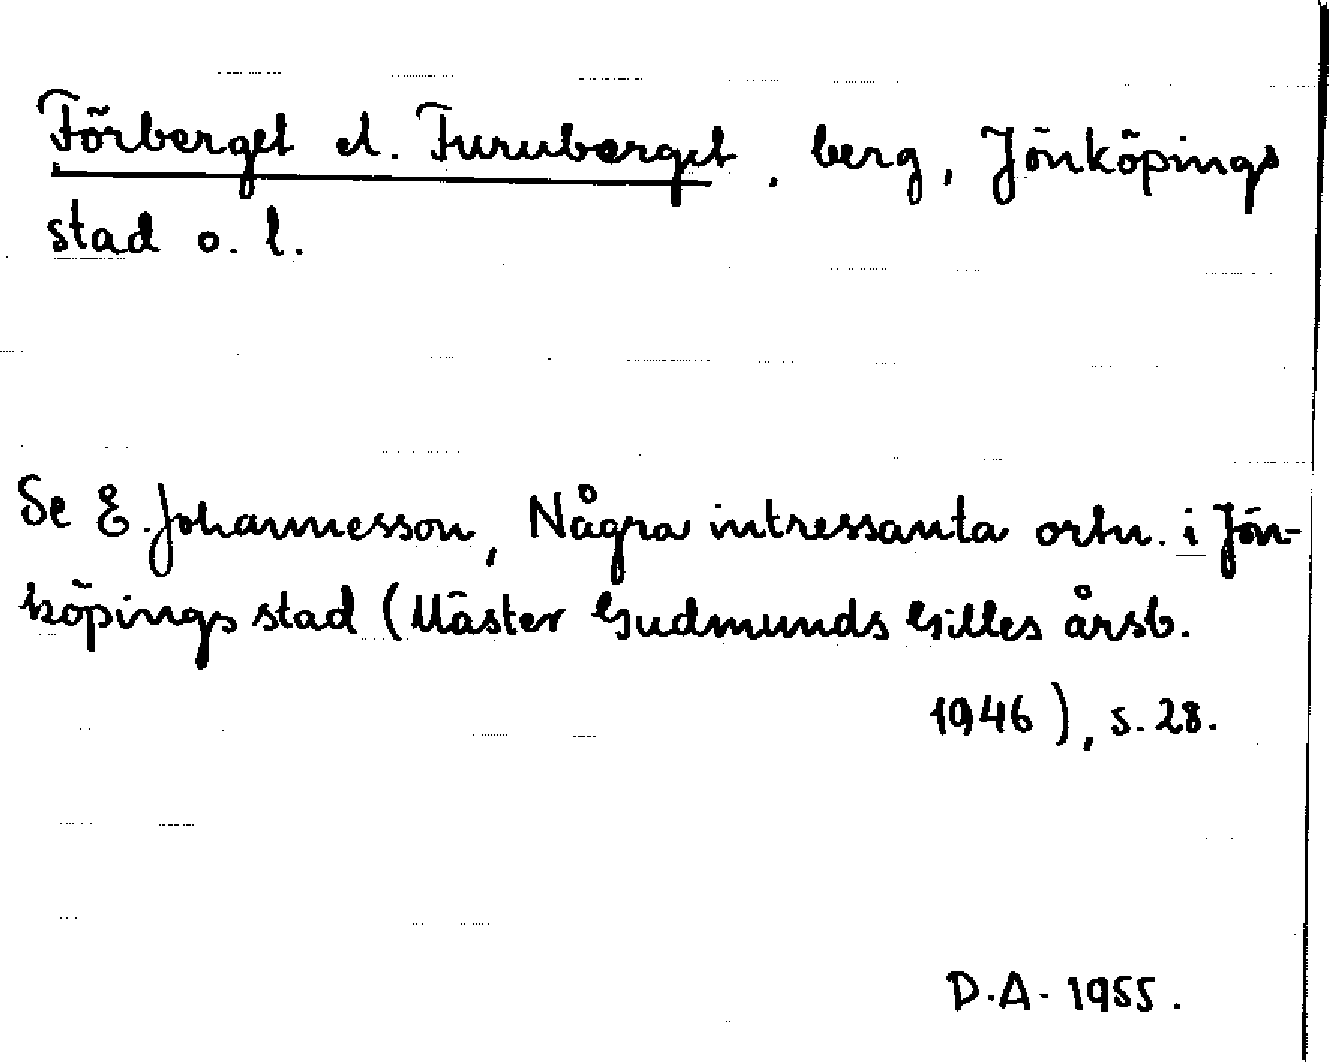 Förberget el. Furuberget, berg, Jönköpings
stad o. l.
Se E. Johannesson, Några intressanta ortn. i Jön-
köpings stad (Mäster Gudmunds Gilles årsb.
1946), s. 28.
D.A. 1955.